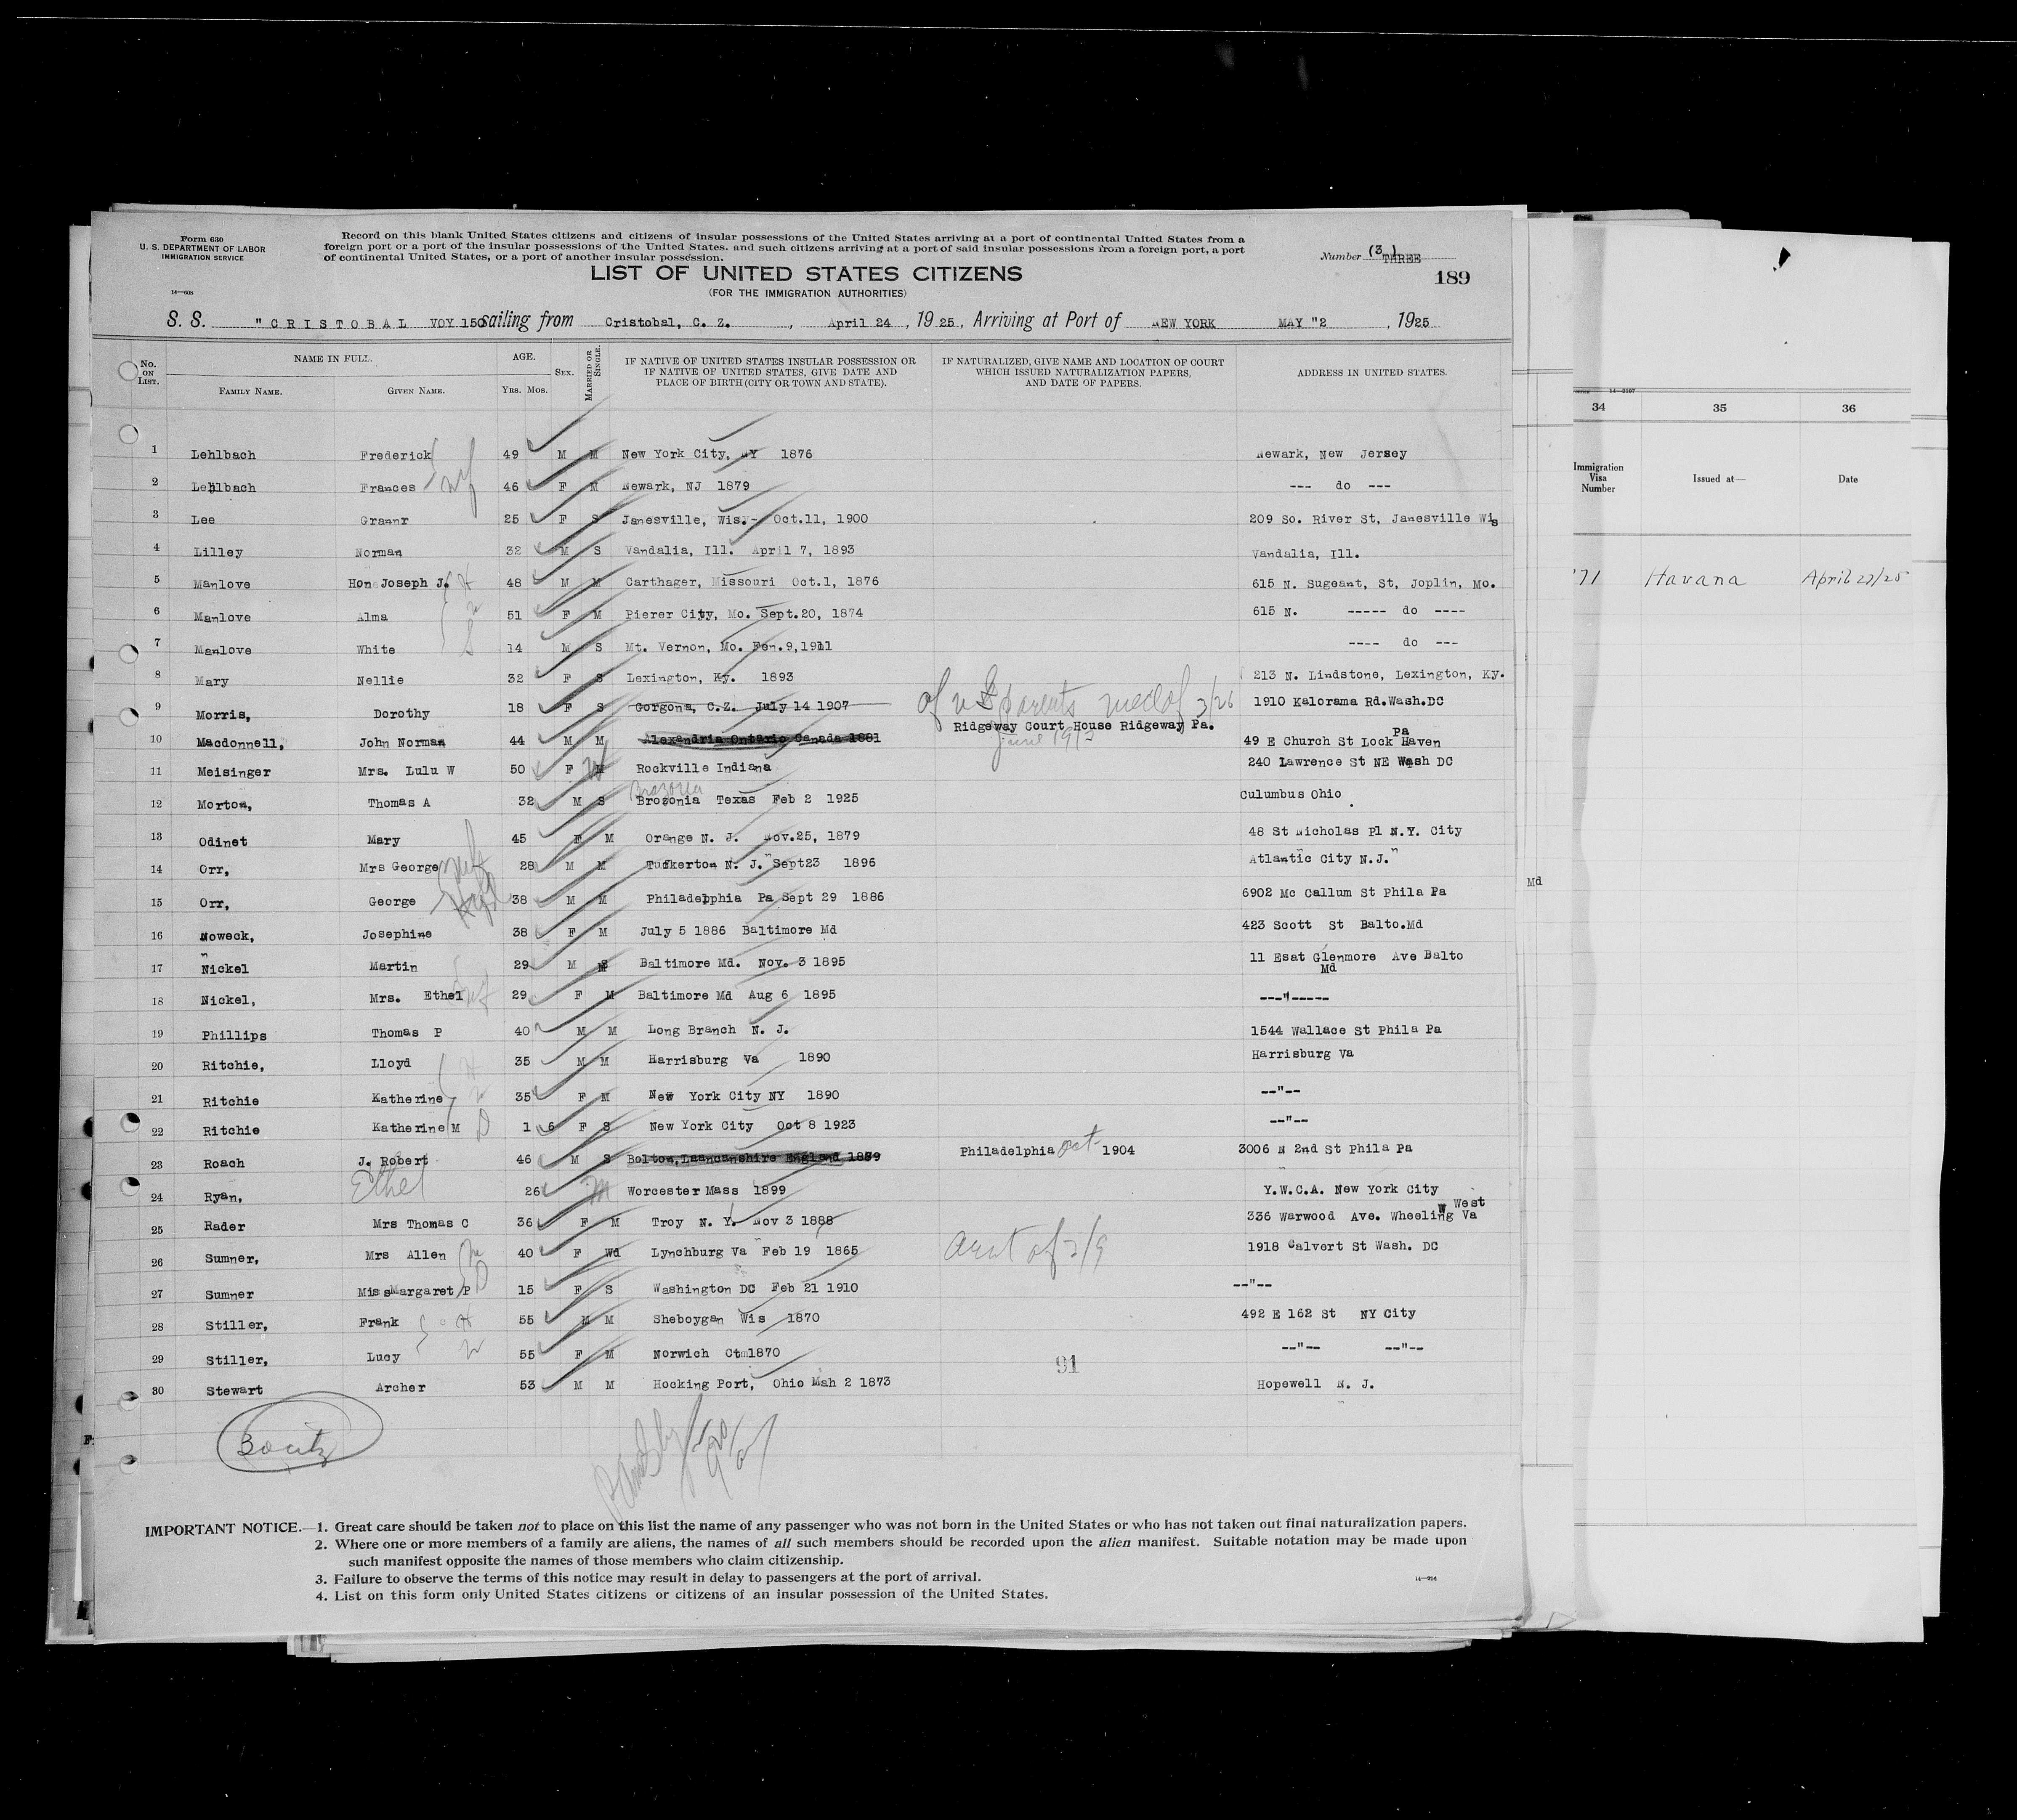 Form 630
U. S. DEPARTMENT OF LABOR
IMMIGRATION SERVICE
Record on this blank United States citizens and citizens of insular possessions of the United States arriving at a port of continental United States from a
foreign port or a port of the insular possessions of the United States. and such citizens arriving at a port of said insular possessions from a foreign port, a port
of continental United States, or a port of another insular possession.
Number (3) THREE
LIST OF UNITED STATES CITIZENS
189
(FOR THE IMMIGRATION AUTHORITIES)
14—608
S. S. "CRISTOBAL VOY 150 sailing from Cristobal, C. Z. , April 24 , 1925, Arriving at Port of NEW YORK MAY "2 , 1925
No. ON LIST. NAME IN FULL. FAMILY NAME. GIVEN NAME. AGE. YRS. MOS. SEX. MARRIED OR SINGLE. IF NATIVE OF UNITED STATES INSULAR POSSESSION OR IF NATIVE OF UNITED STATES, GIVE DATE AND PLACE OF BIRTH (CITY OR TOWN AND STATE). IF NATURALIZED, GIVE NAME AND LOCATION OF COURT WHICH ISSUED NATURALIZATION PAPERS, AND DATE OF PAPERS. ADDRESS IN UNITED STATES.
1 Lehlbach Frederick 49 M M New York City, NY 1876 Newark, New Jersey
2 Lehlbach Frances wf 46 F M Newark, NJ 1879 --- do ---
3 Lee Grannr 25 F S Janesville, Wis.- Oct.11, 1900 209 So. River St, Janesville Wis
4 Lilley Norman 32 M S Vandalia, Ill. April 7, 1893 Vandalia, Ill.
5 Manlove Hon Joseph J. H 48 M M Carthager, Missouri Oct.1, 1876 615 N. Sugeant, St, Joplin, Mo.
6 Manlove Alma w 51 F M Pierer City, Mo. Sept.20, 1874 615 N. ----- do ----
7 Manlove White S 14 M S Mt. Vernon, Mo. Fen.9,1911 ---- do ---
8 Mary Nellie 32 F S Lexington, Ky. 1893 213 N. Lindstone, Lexington, Ky.
9 Morris, Dorothy 18 F S Gorgona, C.Z. July 14 1907 of U S parents 3/26 1910 Kalorama Rd.Wash.DC
10 Macdonnell, John Norman 44 M M Alexandria Ontario Canada 1881 Ridgeway Court House Ridgeway Pa. 1913 49 E Church St Lock Haven Pa
11 Meisinger Mrs. Lulu W 50 F M Rockville Indiana 240 Lawrence St NE Wash DC
12 Morton, Thomas A 32 M S Brozonia Brazoria Texas Feb 2 1925 Culumbus Ohio
13 Odinet Mary 45 F M Orange N. J. Nov.25, 1879 48 St Nicholas Pl N.Y. City
14 Orr, Mrs George 28 M M Tuckerton N. J. Sept23 1896 Atlantic City N.J.
15 Orr, George 38 M M Philadelphia Pa Sept 29 1886 6902 Mc Callum St Phila Pa
16 Noweck, Josephine 38 F M July 5 1886 Baltimore Md 423 Scott St Balto.Md
17 Nickel Martin 29 M M Baltimore Md. Nov. 3 1895 11 Esat Glenmore Ave Balto Md
18 Nickel, Mrs. Ethel wf 29 F M Baltimore Md Aug 6 1895 ---"-----
19 Phillips Thomas P 40 M M Long Branch N. J. 1544 Wallace St Phila Pa
20 Ritchie, Lloyd H 35 M M Harrisburg Va 1890 Harrisburg Va
21 Ritchie Katherine w 35 F M New York City NY 1890 --"--
22 Ritchie Katherine M D 1 6 F S New York City Oct 8 1923 --"--
23 Roach J. Robert 46 M S Bolton,Laancanshire England 1859 Philadelphia Oct 1904 3006 N 2nd St Phila Pa
24 Ryan, Ethel 26 M Worcester Mass 1899 Y.W.C.A. New York City
25 Rader Mrs Thomas C 36 F M Troy N. Y. Nov 3 1888 336 Warwood Ave. Wheeling W West Va
26 Sumner, Mrs Allen 40 F Wd Lynchburg Va Feb 19 1865 1918 Calvert St Wash. DC
27 Sumner Miss Margaret P D 15 F S Washington DC Feb 21 1910 --"--
28 Stiller, Frank H 55 M M Sheboygan Wis 1870 492 E 162 St NY City
29 Stiller, Lucy w 55 F M Norwich Ctm1870 --"-- --"--
91
30 Stewart Archer 53 M M Hocking Port, Ohio Mah 2 1873 Hopewell N. J.
30 citz
IMPORTANT NOTICE.—1. Great care should be taken not to place on this list the name of any passenger who was not born in the United States or who has not taken out final naturalization papers.
2. Where one or more members of a family are aliens, the names of all such members should be recorded upon the alien manifest. Suitable notation may be made upon
such manifest opposite the names of those members who claim citizenship.
3. Failure to observe the terms of this notice may result in delay to passengers at the port of arrival.
4. List on this form only United States citizens or citizens of an insular possession of the United States.
Md
34 35 36
Immigration Visa Number Issued at— Date
71 Havana April 27/25